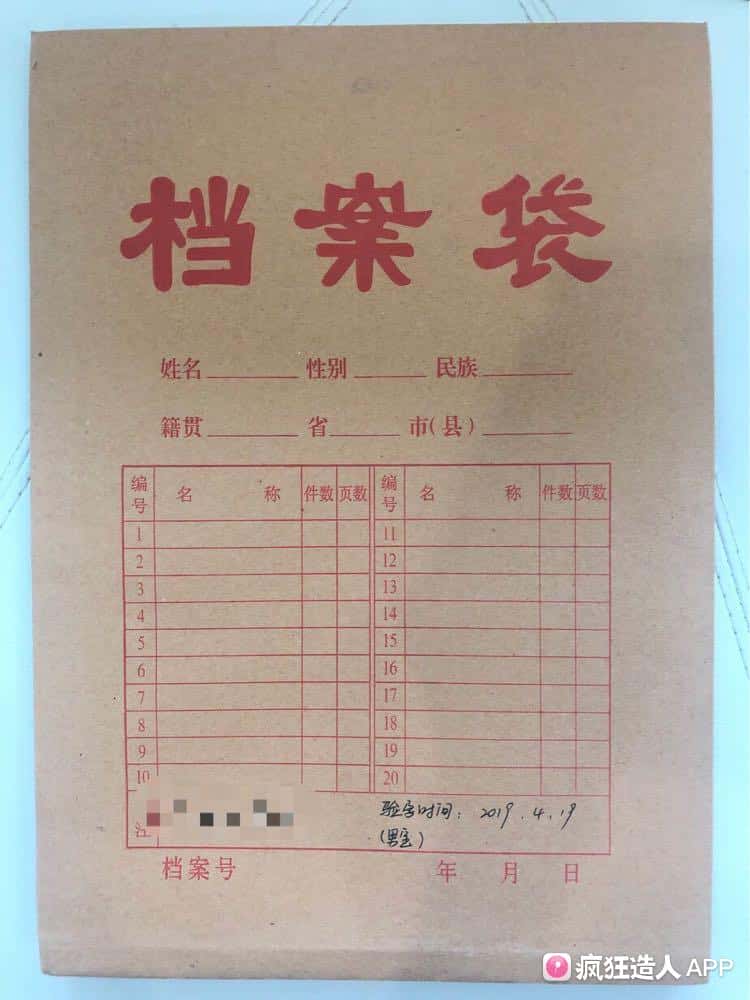 档案袋
姓名 性别 民族
籍贯 省 市(县)
编号 名称 件数 页数 编号 名称 件数 页数
1 11
2 12
3 13
4 14
5 15
6 16
7 17
8 18
9 19
10 20
验室时间：2019.4.19
(男宝)
档案号 年 月 日
疯狂造人 APP